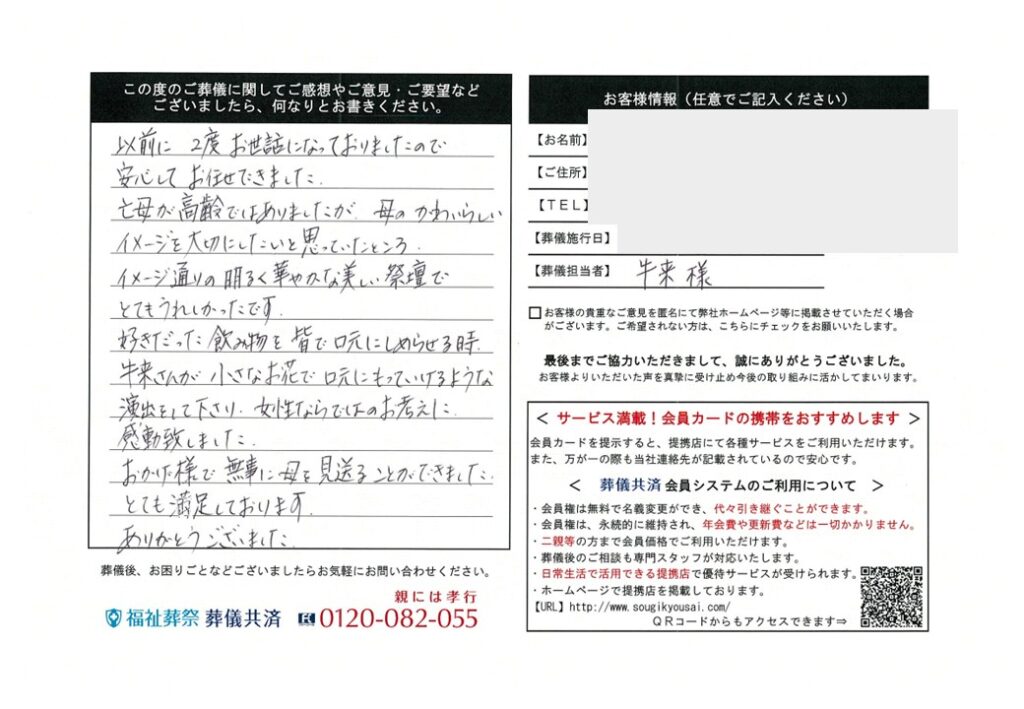 この度のご葬儀に関してご感想やご意見・ご要望など
ございましたら、何なりとお書きください。
以前に 2度 お世話になっておりましたので
安心して お任せできました.
亡母が高齢ではありましたが. 母の かわいらしい
イメージを大切にしたいと思っていたところ.
イメージ通りの 明るく華やかな美しい祭壇で
とてもうれしかったです.
好きだった 飲み物を 皆で 口元にしめらせる時.
牛来さんが 小さなお花で 口元にもっていけるような
演出をして下さり. 女性ならではのお考えに.
感動致しました.
おかげ様で 無事に母を見送ることができました.
とても満足しております.
ありがとうございました.
葬儀後、お困りごとなどございましたらお気軽にお問い合わせください。
親には孝行
福祉葬祭 葬儀共済 0120-082-055
お客様情報(任意でご記入ください)
【お名前】
【ご住所】
【TEL】
【葬儀施行日】
【葬儀担当者】 牛来 様
□お客様の貴重なご意見を匿名にて弊社ホームページ等に掲載させていただく場合
がございます。ご希望されない方は、こちらにチェックをお願いいたします。
最後までご協力いただきまして、誠にありがとうございました。
お客様よりいただいた声を真摯に受け止め今後の取り組みに活かしてまいります。
< サービス満載!会員カードの携帯をおすすめします >
会員カードを提示すると、提携店にて各種サービスをご利用いただけます。
また、万が一の際も当社連絡先が記載されているので安心です。
< 葬儀共済 会員システムのご利用について >
・会員権は無料で名義変更ができ、代々引き継ぐことができます。
・会員権は、永続的に維持され、年会費や更新費などは一切かかりません。
・二親等の方まで会員価格でご利用いただけます。
・葬儀後のご相談も専門スタッフが対応いたします。
・日常生活で活用できる提携店で優待サービスが受けられます。
・ホームページで提携店を掲載しております。
【URL】http://www.sougikyousai.com/
QRコードからもアクセスできます⇒